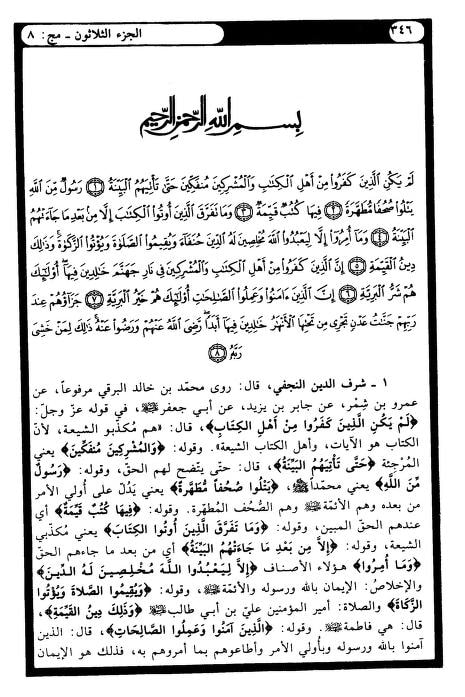 الجزء الثلاثون ـ مج: ٨ ٣٤٦
بِسْمِ اللهِ الرَّحْمنِ الرَّحِيمِ
لَمْ يَكُنِ الَّذِينَ كَفَرُوا مِنْ أَهْلِ الْكِتَابِ وَالْمُشْرِكِينَ مُنفَكِّينَ حَتَّى تَأْتِيَهُمُ الْبَيِّنَةُ ﴿١﴾ رَسُولٌ مِّنَ اللَّهِ
يَتْلُوا صُحُفًا مُّطَهَّرَةً ﴿٢﴾ فِيهَا كُتُبٌ قَيِّمَةٌ ﴿٣﴾ وَمَا تَفَرَّقَ الَّذِينَ أُوتُوا الْكِتَابَ إِلَّا مِنْ بَعْدِ مَا جَاءَتْهُمُ
الْبَيِّنَةُ ﴿٤﴾ وَمَا أُمِرُوا إِلَّا لِيَعْبُدُوا اللَّهَ مُخْلِصِينَ لَهُ الدِّينَ حُنَفَاءَ وَيُقِيمُوا الصَّلَوٰةَ وَيُؤْتُوا الزَّكَوٰةَ وَذَٰلِكَ
دِينُ الْقَيِّمَةِ ﴿٥﴾ إِنَّ الَّذِينَ كَفَرُوا مِنْ أَهْلِ الْكِتَابِ وَالْمُشْرِكِينَ فِي نَارِ جَهَنَّمَ خَالِدِينَ فِيهَا أُولَٰئِكَ
هُمْ شَرُّ الْبَرِيَّةِ ﴿٦﴾ إِنَّ الَّذِينَ ءَامَنُوا وَعَمِلُوا الصَّالِحَاتِ أُولَٰئِكَ هُمْ خَيْرُ الْبَرِيَّةِ ﴿٧﴾ جَزَاؤُهُمْ عِندَ
رَبِّهِمْ جَنَّتُ عَدْنٍ تَجْرِي مِن تَحْتِهَا الْأَنْهَارُ خَالِدِينَ فِيهَا أَبَدًا رَّضِيَ اللَّهُ عَنْهُمْ وَرَضُوا عَنْهُ ذَٰلِكَ لِمَنْ خَشِيَ
رَبَّهُ ﴿٨﴾
١ ـ شرف الدين النجفي، قال: روى محمّد بن خالد البرقي مرفوعاً، عن
عمرو بن شِمْر، عن جابر بن يزيد، عن أبي جعفر ﷺ، في قوله عزّ وجلّ:
﴿لَمْ يَكُنِ الَّذِينَ كَفَرُوا مِنْ أَهْلِ الْكِتَابِ﴾، قال: «هم مكذّبو الشيعة، لأنّ
الكتاب هو الآيات، وأهل الكتاب الشيعة». وقوله: ﴿وَالْمُشْرِكِينَ مُنفَكِّينَ﴾ يعني
المُرجِئة ﴿حَتَّى تَأْتِيَهُمُ الْبَيِّنَةُ﴾، قال: حتّى يتّضح لهم الحقّ، وقوله: ﴿رَسُولٌ
مِّنَ اللَّهِ﴾ يعني محمّداً ﷺ، ﴿يَتْلُوا صُحُفاً مُّطَهَّرَةً﴾ يعني يَدُلّ على أولي الأمر
من بعده وهم الأئمّة ﷺ وهم الصُّحف المطهّرة. وقوله: ﴿فِيهَا كُتُبٌ قَيِّمَةٌ﴾ أي
عندهم الحقّ المبين، وقوله: ﴿وَمَا تَفَرَّقَ الَّذِينَ أُوتُوا الكِتَابَ﴾ يعني مُكذّبي
الشيعة، وقوله: ﴿إِلاَّ مِن بَعْدِ مَا جَاءَتْهُمُ الْبَيِّنَةُ﴾ أي من بعد ما جاءهم الحقّ
﴿وَمَا أُمِرُوا﴾ هؤلاء الأصناف ﴿إِلاَّ لِيَعْبُدُوا اللَّهَ مُخْلِصِينَ لَهُ الدِّينَ﴾
والإخلاصُ: الإيمان بالله ورسوله والأئمّة ﷺ، وقوله: ﴿وَيُقِيمُوا الصَّلاةَ وَيُؤْتُوا
الزَّكَاةَ﴾ والصلاة: أمير المؤمنين عليّ بن أبي طالب ﷺ، ﴿وَذَلِكَ دِينُ القَيِّمَةِ﴾،
قال: هي فاطمة ﷺ. وقوله: ﴿الَّذِينَ آمَنُوا وَعَمِلُوا الصَّالِحَاتِ﴾، قال: الذين
آمنوا بالله ورسوله وبأولي الأمر وأطاعوهم بما أمروهم به، فذلك هو الإيمان